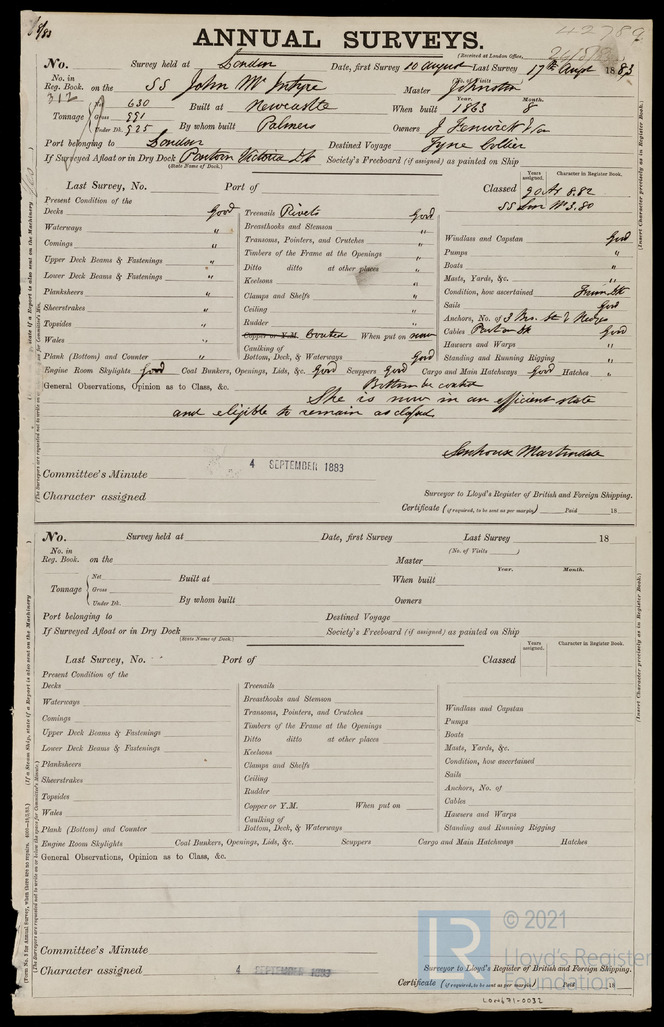 42789
ANNUAL SURVEYS.
(Received at London Office,
No. Survey held at London Date, first Survey 10 August Last Survey 17th Augt 1883
No. in Reg. Book. 312 on the SS John McIntyre Master Johnston
(No. of Visits
Year. Month.
Tonnage Net 630 Built at Newcastle When built 1863 8
Gross 991
Under Dk. 925 By whom built Palmers Owners J Fenwick & Son
Port belonging to London Destined Voyage Tyne Collier
If Surveyed Afloat or in Dry Dock Pontoon Victoria Dk Society's Freeboard (if assigned) as painted on Ship
(State Name of Dock.)
Years assigned. Character in Register Book.
Last Survey, No. Port of Classed 90 A1 8.82
SS Lon No 3.80
Present Condition of the
Decks Good
Waterways "
Comings "
Upper Deck Beams & Fastenings "
Lower Deck Beams & Fastenings "
Planksheers "
Sheerstrakes "
Topsides "
Wales "
Plank (Bottom) and Counter "
Treenails Rivets Good
Breasthooks and Stemson "
Transoms, Pointers, and Crutches "
Timbers of the Frame at the Openings "
Ditto ditto at other places "
Keelsons "
Clamps and Shelfs "
Ceiling "
Rudder "
Copper or Y.M. Coated When put on now
Caulking of
Bottom, Deck, & Waterways Good
Windlass and Capstan Good
Pumps "
Boats "
Masts, Yards, &c. "
Condition, how ascertained From Dk
Sails Good
Anchors, No. of 3
Cables Good
Hawsers and Warps "
Standing and Running Rigging "
Engine Room Skylights Good Coal Bunkers, Openings, Lids, &c. Good Scuppers Good Cargo and Main Hatchways Good Hatches "
General Observations, Opinion as to Class, &c. Bottom be coated
She is now in an efficient state
and eligible to remain as classed
Senhouse Martindale
4 SEPTEMBER 1883
Committee's Minute
Character assigned
Surveyor to Lloyd's Register of British and Foreign Shipping.
Certificate (if required, to be sent as per margin) Paid 18
No. Survey held at Date, first Survey Last Survey 18
(No. of Visits )
No. in Reg. Book. on the Master
Year. Month.
Tonnage Net Built at When built
Gross
Under Dk. By whom built Owners
Port belonging to Destined Voyage
If Surveyed Afloat or in Dry Dock Society's Freeboard (if assigned) as painted on Ship
(State Name of Dock.)
Years assigned. Character in Register Book.
Last Survey, No. Port of Classed
Present Condition of the
Decks
Waterways
Comings
Upper Deck Beams & Fastenings
Lower Deck Beams & Fastenings
Planksheers
Sheerstrakes
Topsides
Wales
Plank (Bottom) and Counter
Treenails
Breasthooks and Stemson
Transoms, Pointers, and Crutches
Timbers of the Frame at the Openings
Ditto ditto at other places
Keelsons
Clamps and Shelfs
Ceiling
Rudder
Copper or Y.M. When put on
Caulking of
Bottom, Deck, & Waterways
Windlass and Capstan
Pumps
Boats
Masts, Yards, &c.
Condition, how ascertained
Sails
Anchors, No. of
Cables
Hawsers and Warps
Standing and Running Rigging
Engine Room Skylights Coal Bunkers, Openings, Lids, &c. Scuppers Cargo and Main Hatchways Hatches
General Observations, Opinion as to Class, &c.
LR © 2021
Lloyd's Register
Foundation
Committee's Minute
Character assigned 4 SEPTEMBER 1883
Surveyor to Lloyd's Register of British and Foreign Shipping.
Certificate (if required, to be sent as per margin) Paid 18
LON671-0032
(Insert Character precisely as in Register Book.)
(Insert Character precisely as in Register Book.)